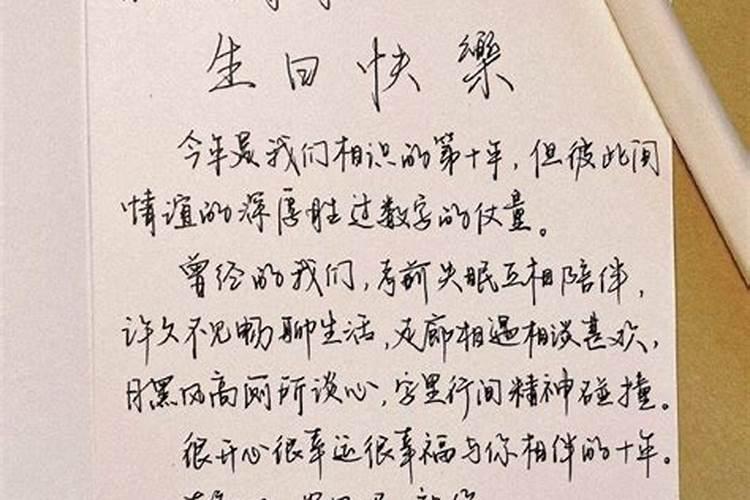 生日快樂
今年是我们相识的第十年，但彼此间
情谊的深厚胜过数字的丈量。
曾经的我们，考前失眠互相陪伴，
许久不见畅聊生活，走廊相遇相谈甚欢，
月黑风高网所谈心，字里行间精神碰撞。
很开心很幸运很幸福与你相伴的十年。